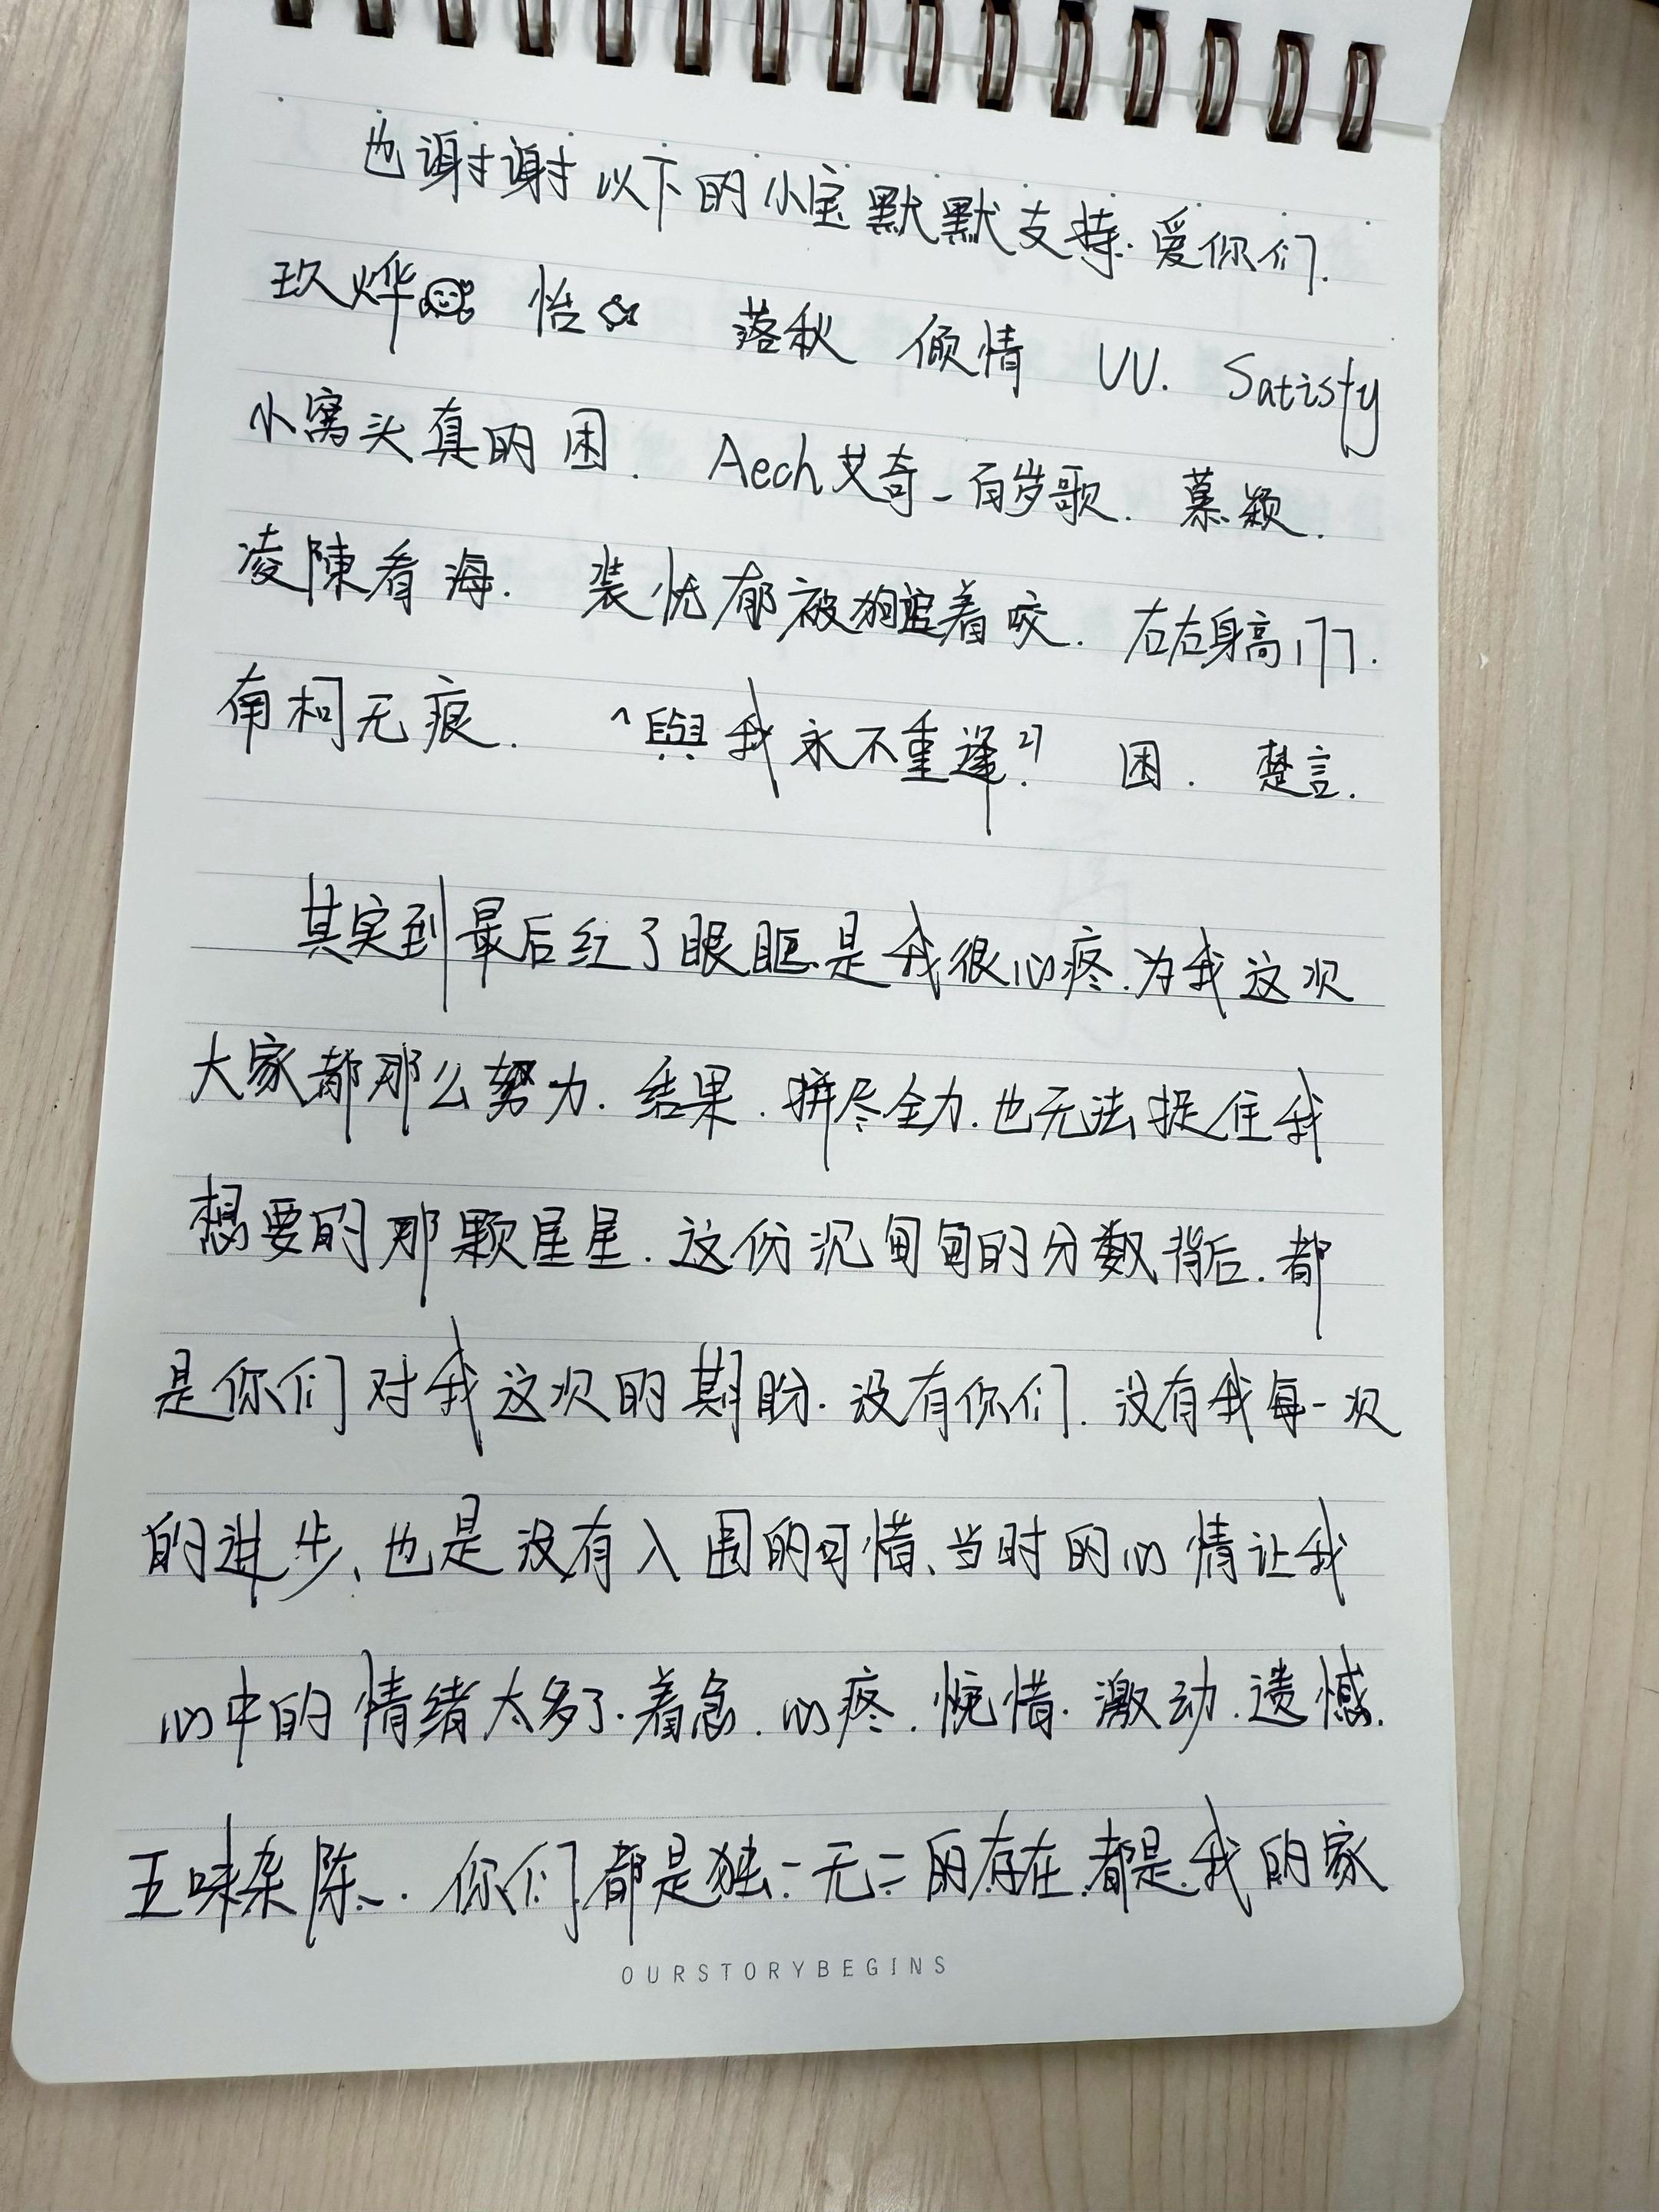 也谢谢以下的小宝默默支持.爱你们.
玖烨 怡 落秋 倾情 UU. Satisfy
小窝头真的困. Aech艾奇-百岁歌. 慕颖.
凌陳看海. 装忧郁被狗追着咬. 右右身高177.
南柯无痕. ^與我永不重逢?” 困. 楚言.
其实到最后红了眼眶.是我很心疼.为我这次
大家都那么努力.结果.拼尽全力.也无法捉住我
想要的那颗星星.这份沉甸甸的分数背后.都
是你们对我这次的期盼.没有你们.没有我每一次
的进步、也是没有入围的可惜、当时的心情让我
心中的情绪太多了.着急.心疼.惋惜.激动.遗憾.
五味杂陈... 你们都是独一无二的存在.都是我的家
OURSTORYBEGINS